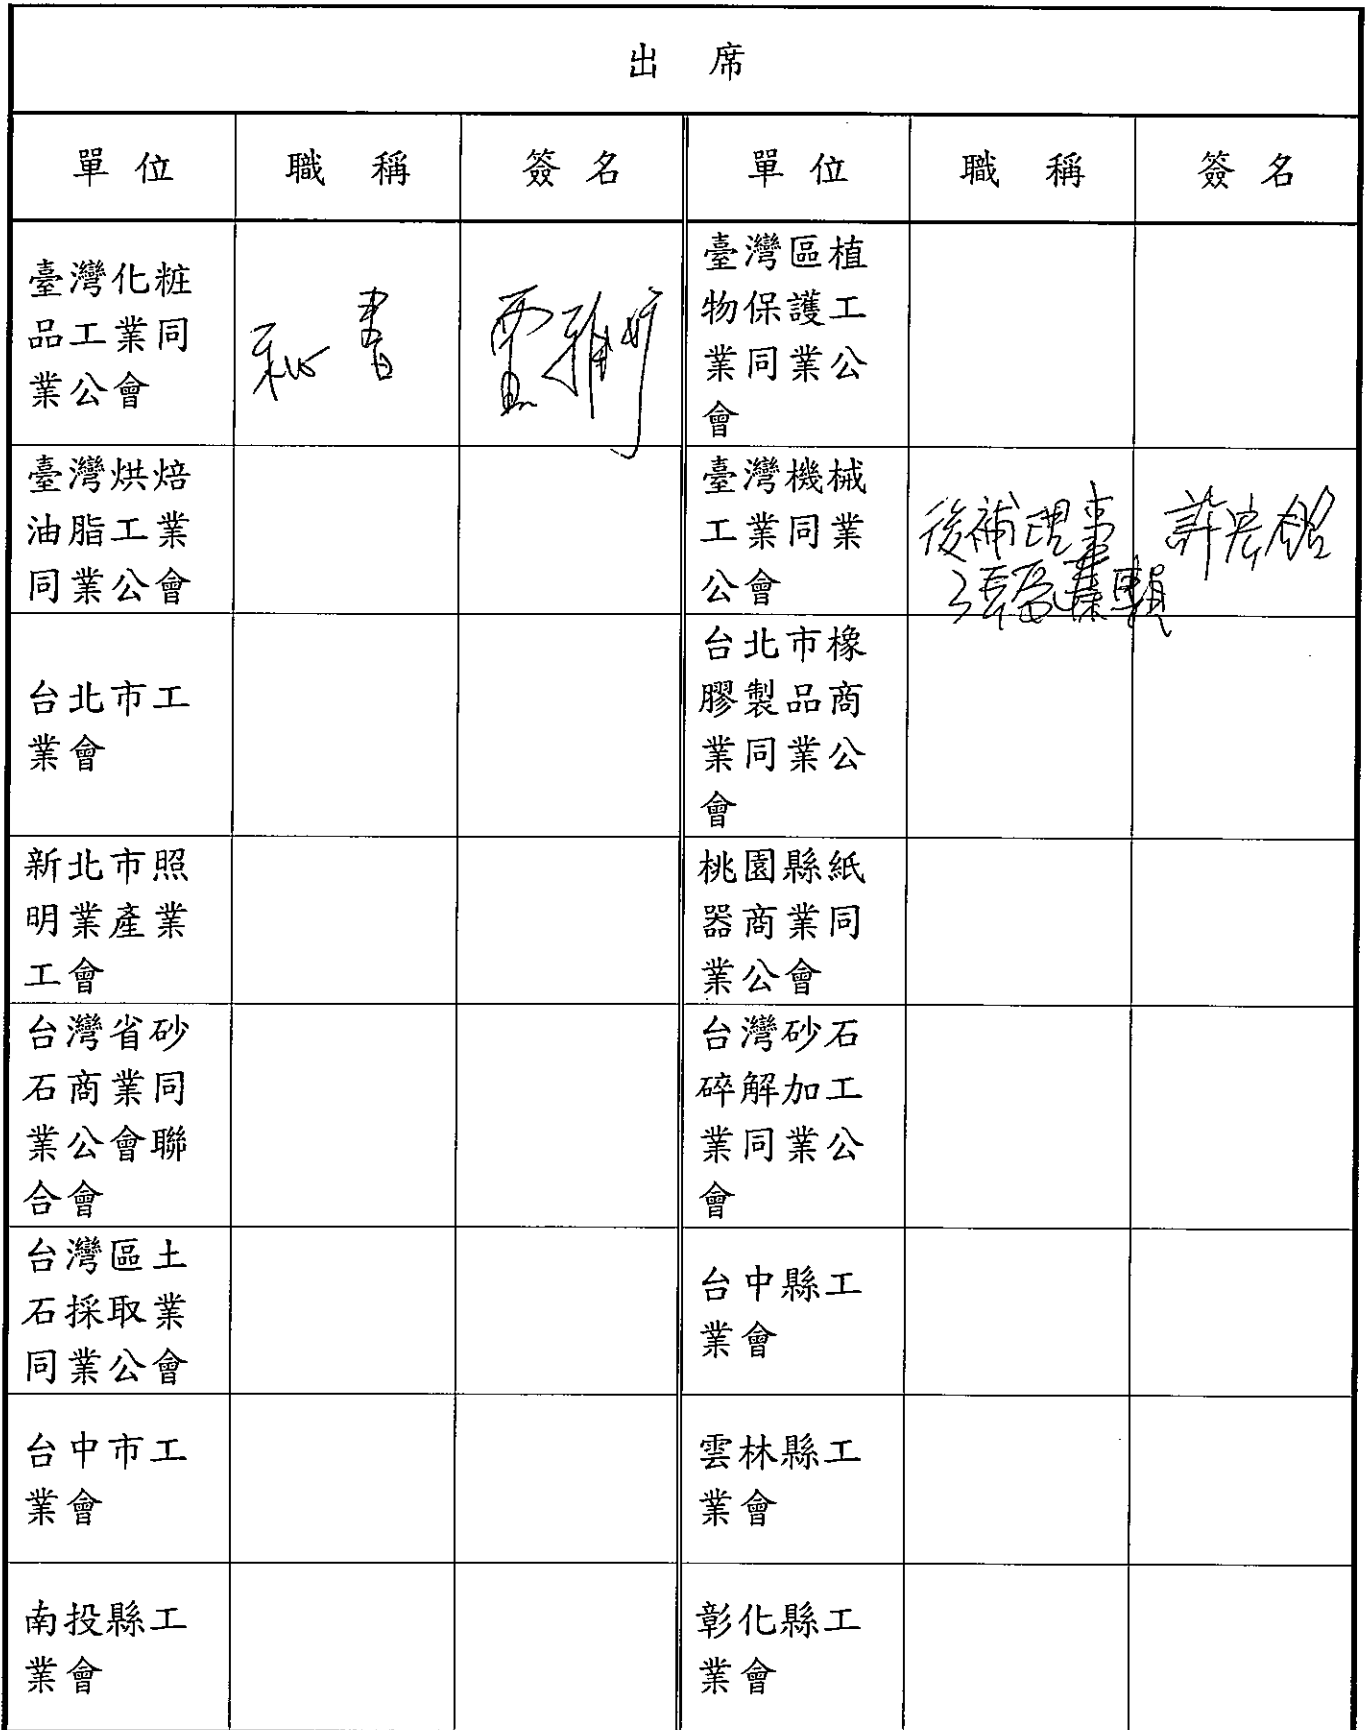 出 席
單位 職稱 簽名 單位 職稱 簽名
臺灣化粧
品工業同
業公會
秘書
臺灣區植
物保護工
業同業公
會
臺灣烘焙
油脂工業
同業公會
臺灣機械
工業同業
公會
後補理事
許宏銘
台北市工
業會
台北市橡
膠製品商
業同業公
會
新北市照
明業產業
工會
桃園縣紙
器商業同
業公會
台灣省砂
石商業同
業公會聯
合會
台灣砂石
碎解加工
業同業公
會
台灣區土
石採取業
同業公會
台中縣工
業會
台中市工
業會
雲林縣工
業會
南投縣工
業會
彰化縣工
業會